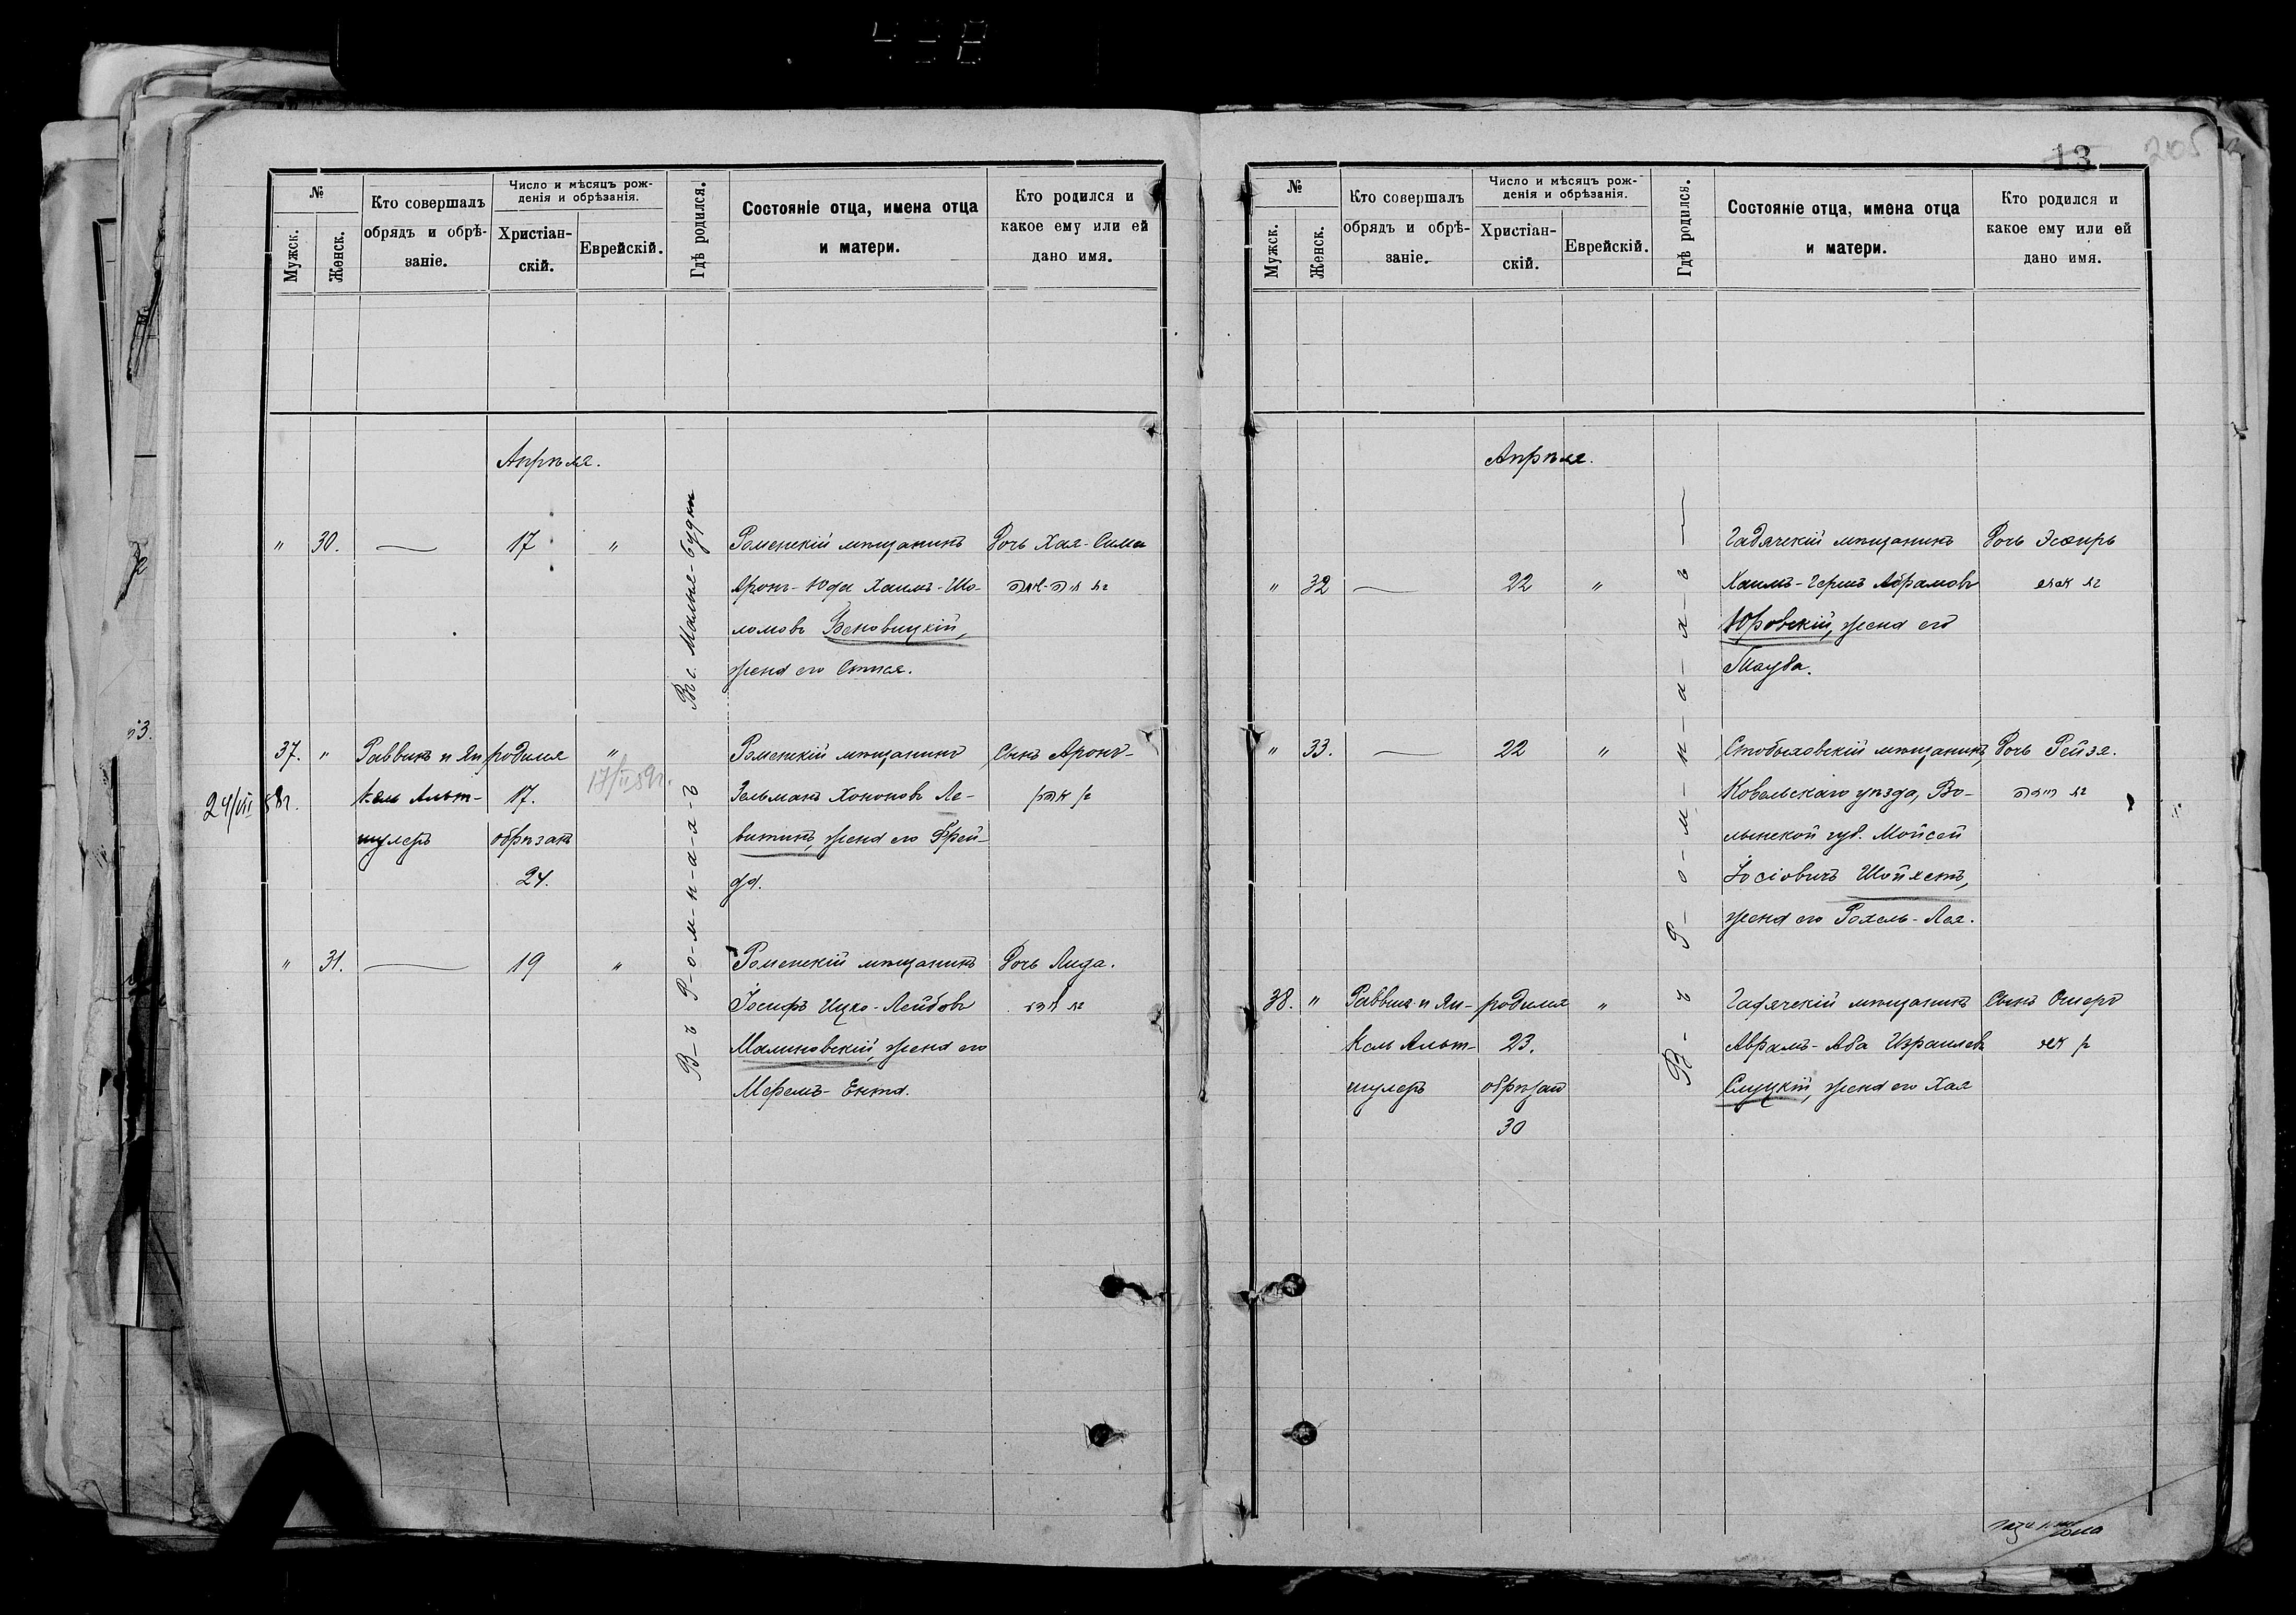 №
Мужск.
Женск.
Кто совершалъ
обрядъ и обрѣ-
заніе.
Число и мѣсяцъ рож-
денія и обрѣзанія.
Христіан-
скій.
Еврейскій.
Гдѣ родился.
Состояніе отца, имена отца
и матери.
Кто родился и
какое ему или ей
дано имя.
Апрѣля.
" 30. — 17 "
Въ с. Малые-Будки
Роменскій мѣщанинъ
Аронъ-Юда Хаимъ-Шо-
ломовъ
жена его
Дочь Хая-Сима
37. "
24/VII 58г.
Раввинъ и Ян
кель Альт-
шулеръ
родился
17.
обрѣзанъ
24.
"
17/II 59г.
В-ъ Р-о-м-н-а-х-ъ
Роменскій мѣщанинъ
Зельманъ Хононовъ Ле-
витинъ, жена его Фрей-
да.
Сынъ Аронъ-
" 31. — 19 "
Роменскій мѣщанинъ
Іосифъ Ицко-Лейбовъ
Малиновскій, жена его
Мерель-Ента.
Дочь Лида.
13
205
№
Мужск.
Женск.
Кто совершалъ
обрядъ и обрѣ-
заніе.
Число и мѣсяцъ рож-
денія и обрѣзанія.
Христіан-
скій.
Еврейскій.
Гдѣ родился.
Состояніе отца, имена отца
и матери.
Кто родился и
какое ему или ей
дано имя.
Апрѣля.
" 32 — 22 "
В-ъ Р-о-м-н-а-х-ъ —
Гадячскій мѣщанинъ
Хаимъ-Гершъ Абрамовъ
Юровскій, жена его
Тауба.
Дочь Эсѳирь
" 33. — 22 "
Стобыховскій мѣщанинъ,
Ковельскаго уѣзда, Во-
лынской губ. Мойсей
Іосіовичъ Шойхетъ,
жена его Рохель-Лея.
Дочь Рейзя.
38. "
Раввин. и Ян-
кель Альт-
шулеръ
родился
23.
обрѣзан
30
"
Гадячскій мѣщанинъ
Аврамъ-Аба Израилевъ
Слуцкій, жена его Хая
Сынъ Ошеръ